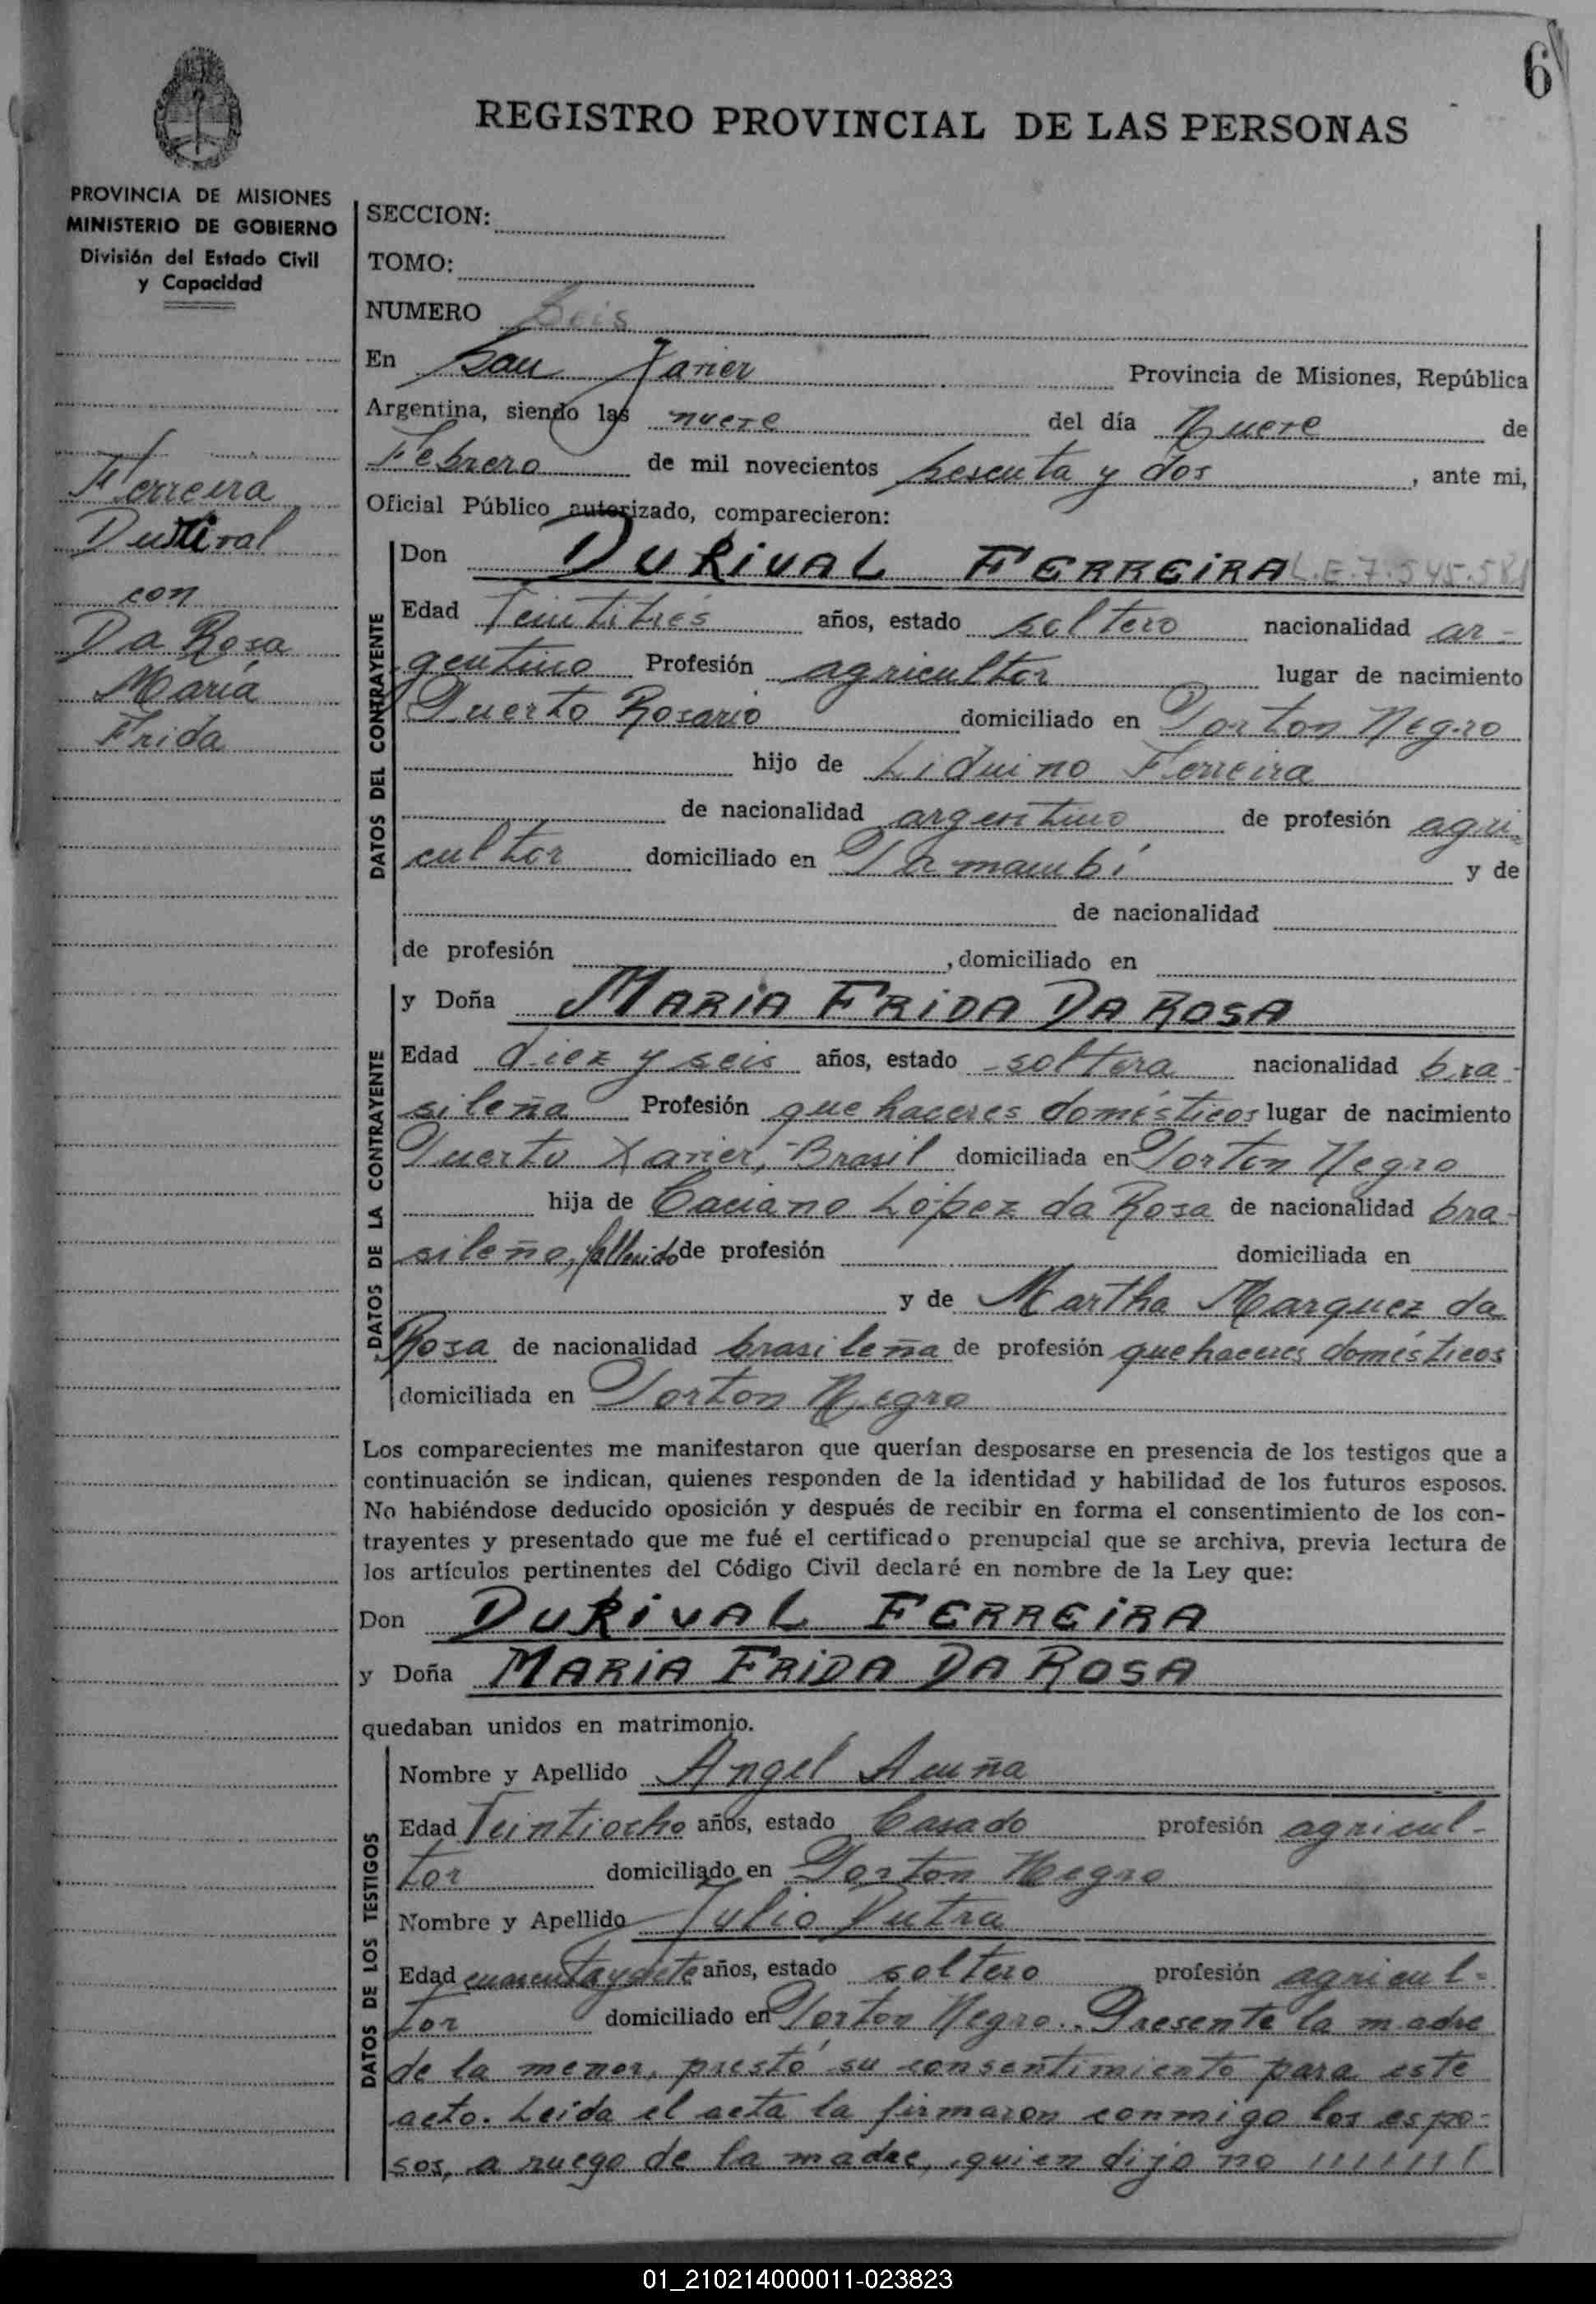 6
REGISTRO PROVINCIAL DE LAS PERSONAS
PROVINCIA DE MISIONES
MINISTERIO DE GOBIERNO
División del Estado Civil
y Capacidad
Ferreira
Durival
con
Da Rosa
María
Frida
SECCION:
TOMO:
NUMERO Seis
En San Javier Provincia de Misiones, República
Argentina, siendo las nueve del día Nueve de
Febrero de mil novecientos sesenta y dos, ante mi,
Oficial Público autorizado, comparecieron:
DATOS DEL CONTRAYENTE
Don DURIVAL FERREIRA L.E.7.545.581
Edad Veintitrés años, estado soltero nacionalidad ar-
gentino Profesión agricultor lugar de nacimiento
Puerto Rosario domiciliado en Porton Negro
hijo de Liduino Ferreira
de nacionalidad argentino de profesión agri-
cultor domiciliado en y de
de nacionalidad
de profesión , domiciliado en
DATOS DE LA CONTRAYENTE
y Doña MARIA FRIDA DA ROSA
Edad diez y seis años, estado soltera nacionalidad bra-
sileña Profesión que haceres domésticos lugar de nacimiento
Puerto Xavier, Brasil domiciliada en Porton Negro
hija de Caciano López da Rosa de nacionalidad bra-
sileño, fallecido de profesión domiciliada en
y de Martha Marquez da
Rosa de nacionalidad brasileña de profesión que haceres domésticos
domiciliada en Porton Negro
Los comparecientes me manifestaron que querían desposarse en presencia de los testigos que a
continuación se indican, quienes responden de la identidad y habilidad de los futuros esposos.
No habiéndose deducido oposición y después de recibir en forma el consentimiento de los con-
trayentes y presentado que me fué el certificado prenupcial que se archiva, previa lectura de
los artículos pertinentes del Código Civil declaré en nombre de la Ley que:
Don DURIVAL FERREIRA
y Doña MARIA FRIDA DA ROSA
quedaban unidos en matrimonio.
DATOS DE LOS TESTIGOS
Nombre y Apellido Angel Acuña
Edad Veintiocho años, estado Casado profesión agricul-
tor domiciliado en Porton Negro
Nombre y Apellido Julio Dutra
Edad cuarenta y siete años, estado soltero profesión agricul-
tor domiciliado en Porton Negro.. Presente la madre
de la menor, prestó su consentimiento para este
acto. Leída el acta la firmaron conmigo los espo-
sos, a ruego de la madre, quien dijo no
01_210214000011-023823